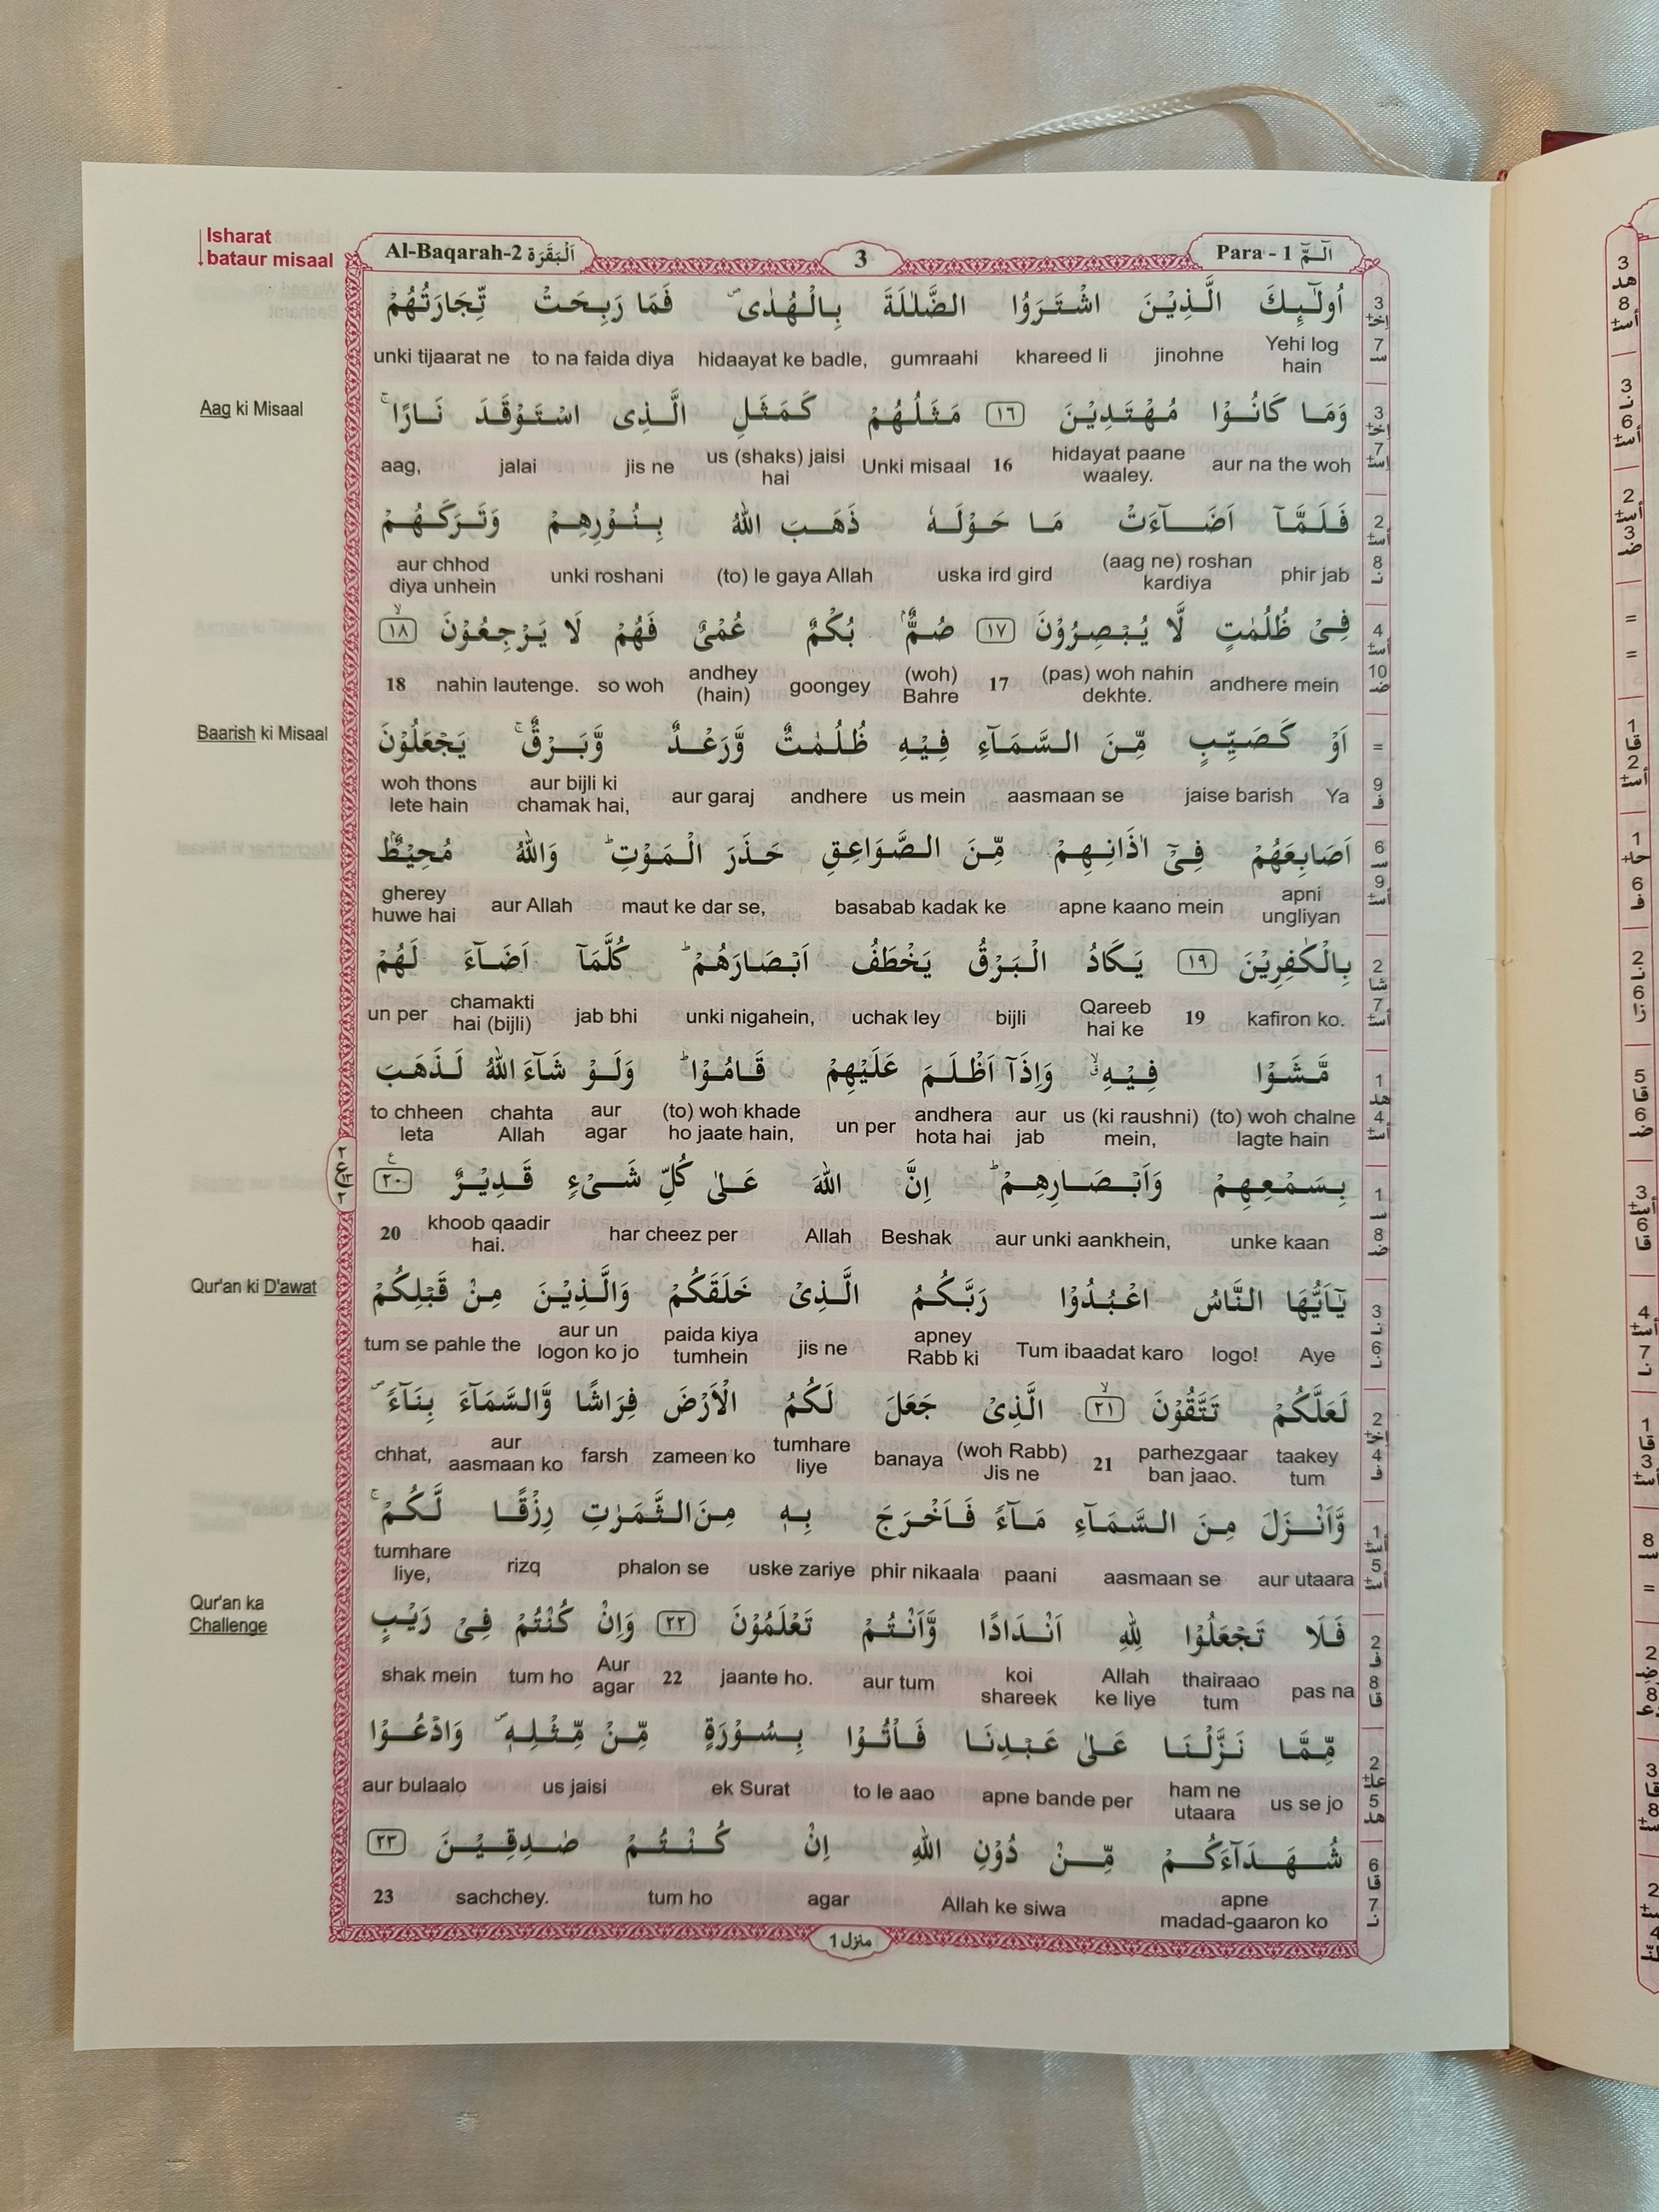 Isharat
bataur misaal
Al-Baqarah-2 اَلْبَقَرَة
3
Para - 1 الٓـمّٓ
اُولٰٓئِكَ الَّذِيْنَ اشْتَرَوُا الضَّلٰلَةَ بِالْهُدٰى ۪ فَمَا رَبِحَتْ تِّجَارَتُهُمْ
Yehi log hain jinohne khareed li gumraahi hidaayat ke badle, to na faida diya unki tijaarat ne
Aag ki Misaal
وَمَا كَانُوْا مُهْتَدِيْنَ ١٦ مَثَلُهُمْ كَمَثَلِ الَّذِى اسْتَوْقَدَ نَارًا ۚ
aur na the woh hidayat paane waaley. 16 Unki misaal us (shaks) jaisi hai jis ne jalai aag,
فَلَمَّآ اَضَآءَتْ مَا حَوْلَهٗ ذَهَبَ اللّٰهُ بِنُوْرِهِمْ وَتَرَكَهُمْ
phir jab (aag ne) roshan kardiya uska ird gird (to) le gaya Allah unki roshani aur chhod diya unhein
فِىْ ظُلُمٰتٍ لَّا يُبْصِرُوْنَ ١٧ صُمٌّۢ بُكْمٌ عُمْىٌ فَهُمْ لَا يَرْجِعُوْنَ ١٨
andhere mein (pas) woh nahin dekhte. 17 (woh) Bahre goongey andhey (hain) so woh nahin lautenge. 18
Baarish ki Misaal
اَوْ كَصَيِّبٍ مِّنَ السَّمَآءِ فِيْهِ ظُلُمٰتٌ وَّرَعْدٌ وَّبَرْقٌ ۚ يَجْعَلُوْنَ
Ya jaise barish aasmaan se us mein andhere aur garaj aur bijli ki chamak hai, woh thons lete hain
اَصَابِعَهُمْ فِىْٓ اٰذَانِهِمْ مِّنَ الصَّوَاعِقِ حَذَرَ الْمَوْتِ ؕ وَاللّٰهُ مُحِيْطٌۢ
apni ungliyan apne kaano mein basabab kadak ke maut ke dar se, aur Allah gherey huwe hai
بِالْكٰفِرِيْنَ ١٩ يَكَادُ الْبَرْقُ يَخْطَفُ اَبْصَارَهُمْ ؕ كُلَّمَآ اَضَآءَ لَهُمْ
kafiron ko. 19 Qareeb hai ke bijli uchak ley unki nigahein, jab bhi chamakti hai (bijli) un per
مَّشَوْا فِيْهِ ۙ وَاِذَآ اَظْلَمَ عَلَيْهِمْ قَامُوْا ؕ وَلَوْ شَآءَ اللّٰهُ لَذَهَبَ
(to) woh chalne lagte hain us (ki raushni) mein, aur jab andhera hota hai un per (to) woh khade ho jaate hain, aur agar chahta Allah to chheen leta
بِسَمْعِهِمْ وَاَبْصَارِهِمْ ؕ اِنَّ اللّٰهَ عَلٰى كُلِّ شَىْءٍ قَدِيْرٌ ٢٠
unke kaan aur unki aankhein, Beshak Allah har cheez per khoob qaadir hai. 20
Qur'an ki D'awat
يٰٓاَيُّهَا النَّاسُ اعْبُدُوْا رَبَّكُمُ الَّذِىْ خَلَقَكُمْ وَالَّذِيْنَ مِنْ قَبْلِكُمْ
Aye logo! Tum ibaadat karo apney Rabb ki jis ne paida kiya tumhein aur un logon ko jo tum se pahle the
لَعَلَّكُمْ تَتَّقُوْنَ ٢١ الَّذِىْ جَعَلَ لَكُمُ الْاَرْضَ فِرَاشًا وَّالسَّمَآءَ بِنَآءً ۪
taakey tum parhezgaar ban jaao. 21 (woh Rabb) Jis ne banaya tumhare liye zameen ko farsh aur aasmaan ko chhat,
وَّاَنْزَلَ مِنَ السَّمَآءِ مَآءً فَاَخْرَجَ بِهٖ مِنَ الثَّمَرٰتِ رِزْقًا لَّكُمْ ۚ
aur utaara aasmaan se paani phir nikaala uske zariye phalon se rizq tumhare liye,
Qur'an ka
Challenge
فَلَا تَجْعَلُوْا لِلّٰهِ اَنْدَادًا وَّاَنْتُمْ تَعْلَمُوْنَ ٢٢ وَاِنْ كُنْتُمْ فِىْ رَيْبٍ
pas na thairaao tum Allah ke liye koi shareek aur tum jaante ho. 22 Aur agar tum ho shak mein
مِّمَّا نَزَّلْنَا عَلٰى عَبْدِنَا فَاْتُوْا بِسُوْرَةٍ مِّنْ مِّثْلِهٖ ۪ وَادْعُوْا
us se jo ham ne utaara apne bande per to le aao ek Surat us jaisi aur bulaalo
شُهَدَآءَكُمْ مِّنْ دُوْنِ اللّٰهِ اِنْ كُنْتُمْ صٰدِقِيْنَ ٢٣
apne madad-gaaron ko Allah ke siwa agar tum ho sachchey. 23
منزل 1